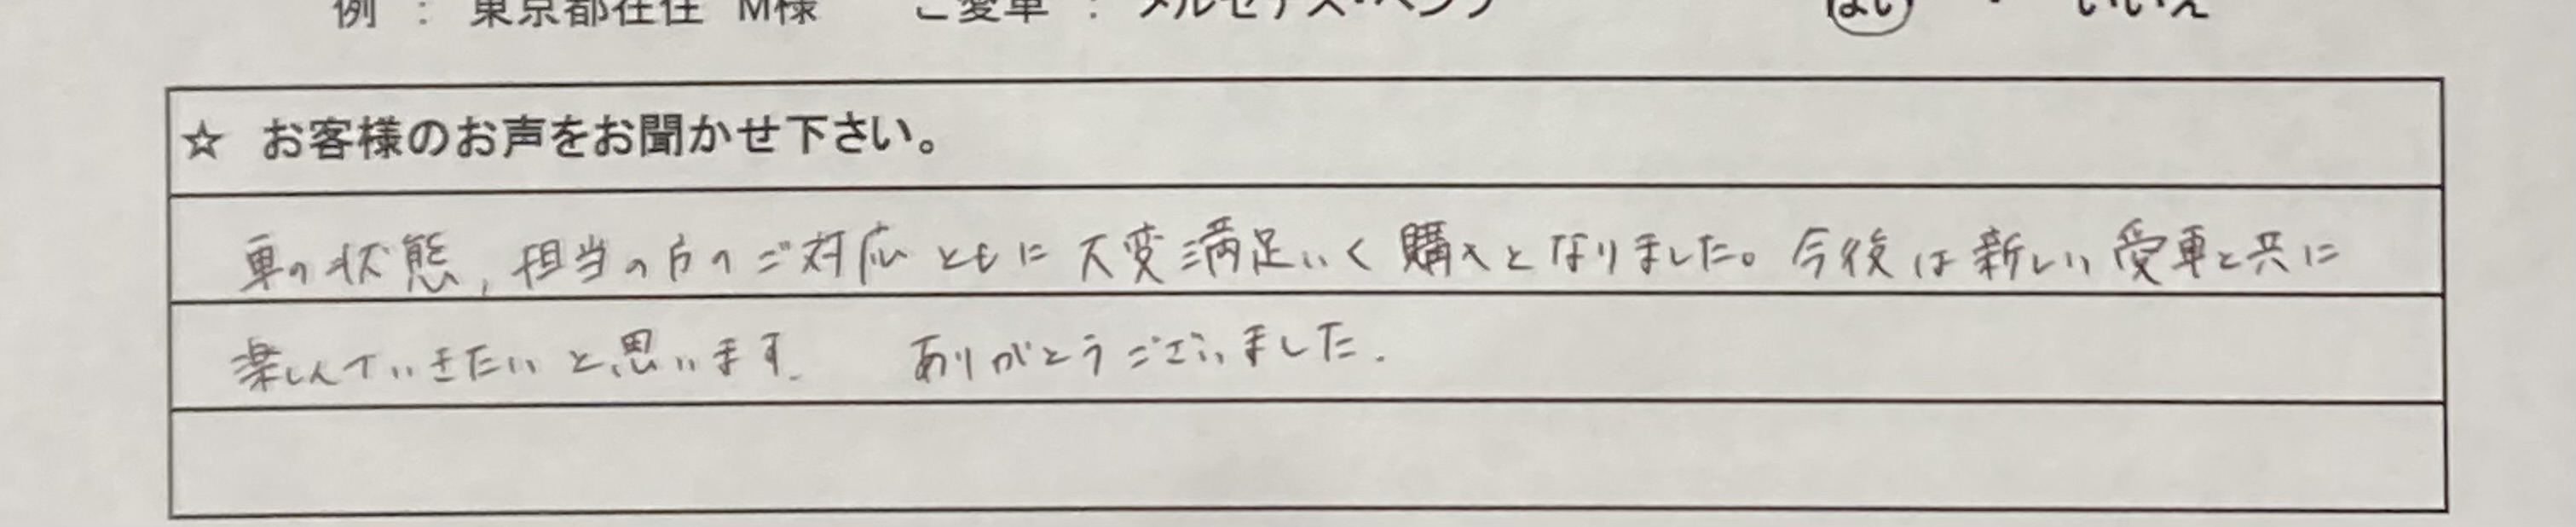 例 ： 東京都在住 M様 ご愛車 ： メルセデス・ベンツ はい ・ いいえ
☆ お客様のお声をお聞かせ下さい。
車の状態, 担当の方のご対応ともに大変満足いく購入となりました。今後は新しい愛車と共に
楽しんでいきたいと思います. ありがとうございました.